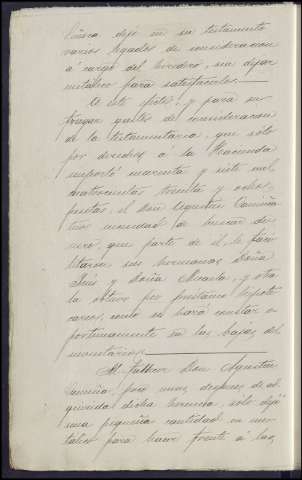 Lúisa dejó en su testamento
varios legados de consideracion
á cargo del heredero, sin dejar
metálico para satisfacerlos.
A este efecto, y para su
fragar gastos de consideracion
de la testamentaria, que sólo
por derechos á la Hacienda
importó cuarenta y siete mil
cuatrocientas treinta y ocho
pesetas, el Don Agustin
tuvo necesidad de buscar di
nero, que parte de él, le faci
litaron sus hermanas Doña
Inés y Doña Micaela, y otra
la obtuvo por préstamo hipote
cario, como se hará constar o
portunamente en las bajas del
inventario.
Al fallecer Don Agustin
pocos meses despues de ad
quirida dicha herencia, sólo dejó
una pequeña cantidad en me
tálico para hacer frente á las